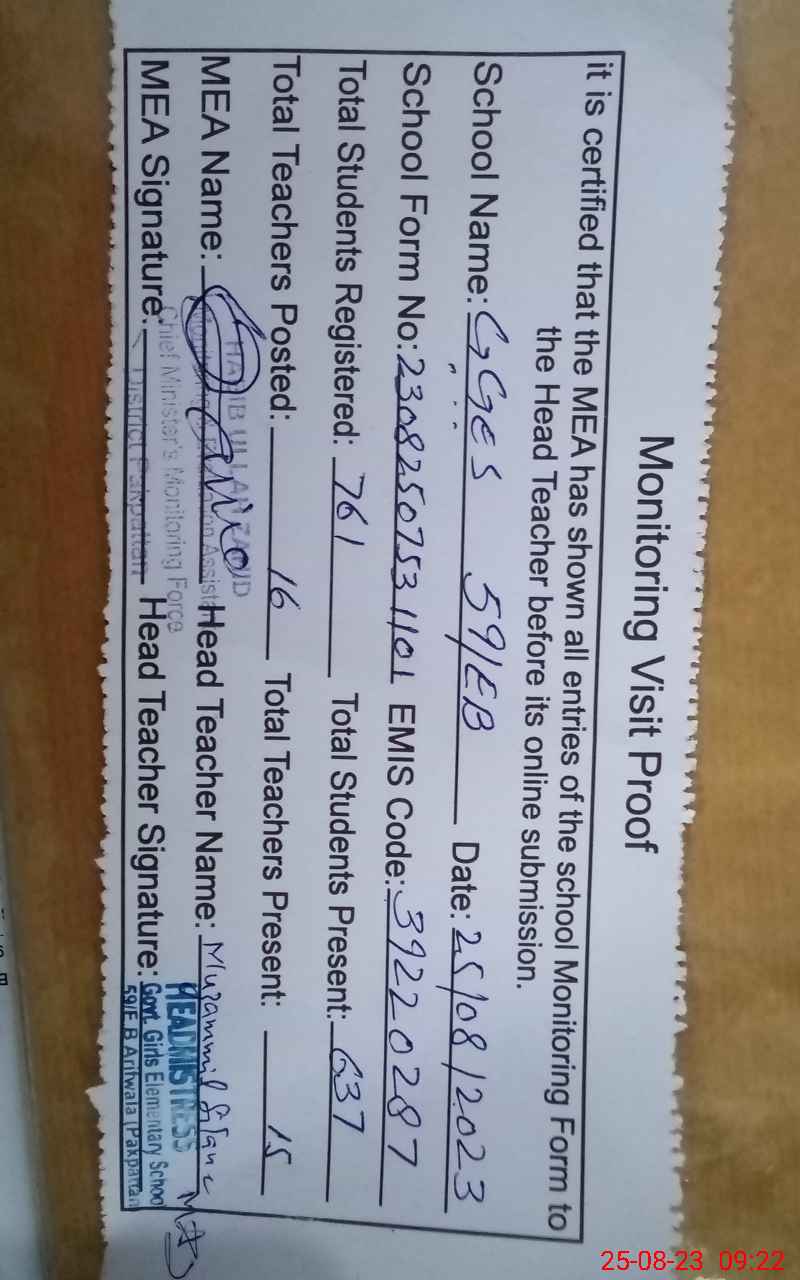 Monitoring Visit Proof
it is certified that the MEA has shown all entries of the school Monitoring Form to
the Head Teacher before its online submission.
School Name: GGES 59/EB Date: 25/08/2023
School Form No: 2308250753 1101 EMIS Code: 39220287
Total Students Registered: 761 Total Students Present: 637
Total Teachers Posted: 16 Total Teachers Present: 15
MEA Name: Head Teacher Name: Muzammil
MEA Signature: Head Teacher Signature:
HABIB ULLAH ZAHID
Monitoring & Assistant
Chief Minister's Monitoring Force
District Pakpattan
HEADMISTRESS
Govt. Girls Elementary School
59/E.B Arifwala (Pakpattan
25-08-23 09:22